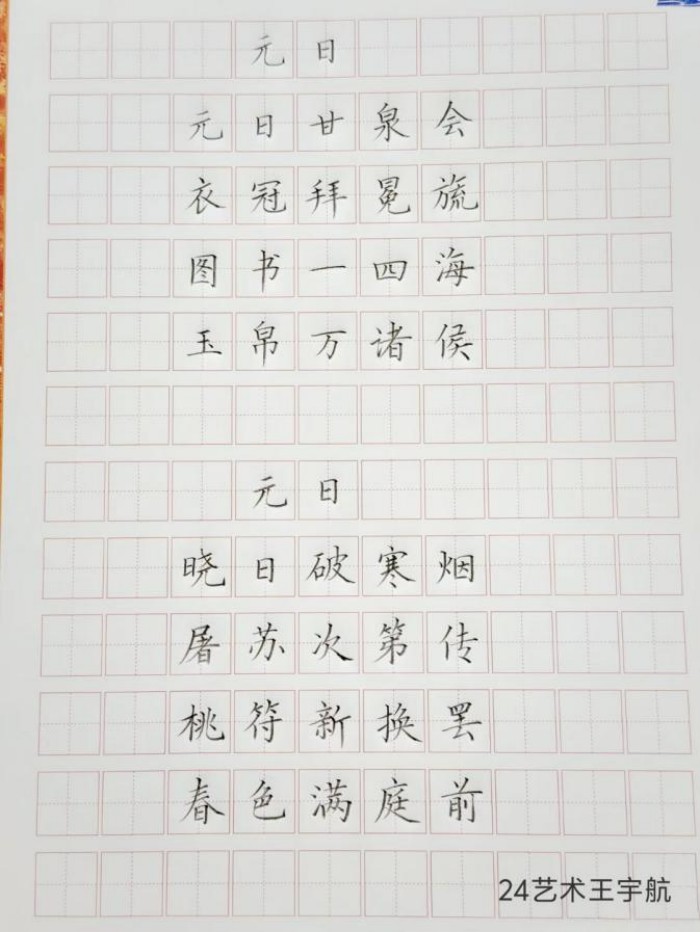 元日
元日甘泉会
衣冠拜冕旒
图书一四海
玉帛万诸侯
元日
晓日破寒烟
屠苏次第传
桃符新换罢
春色满庭前
24艺术王宇航